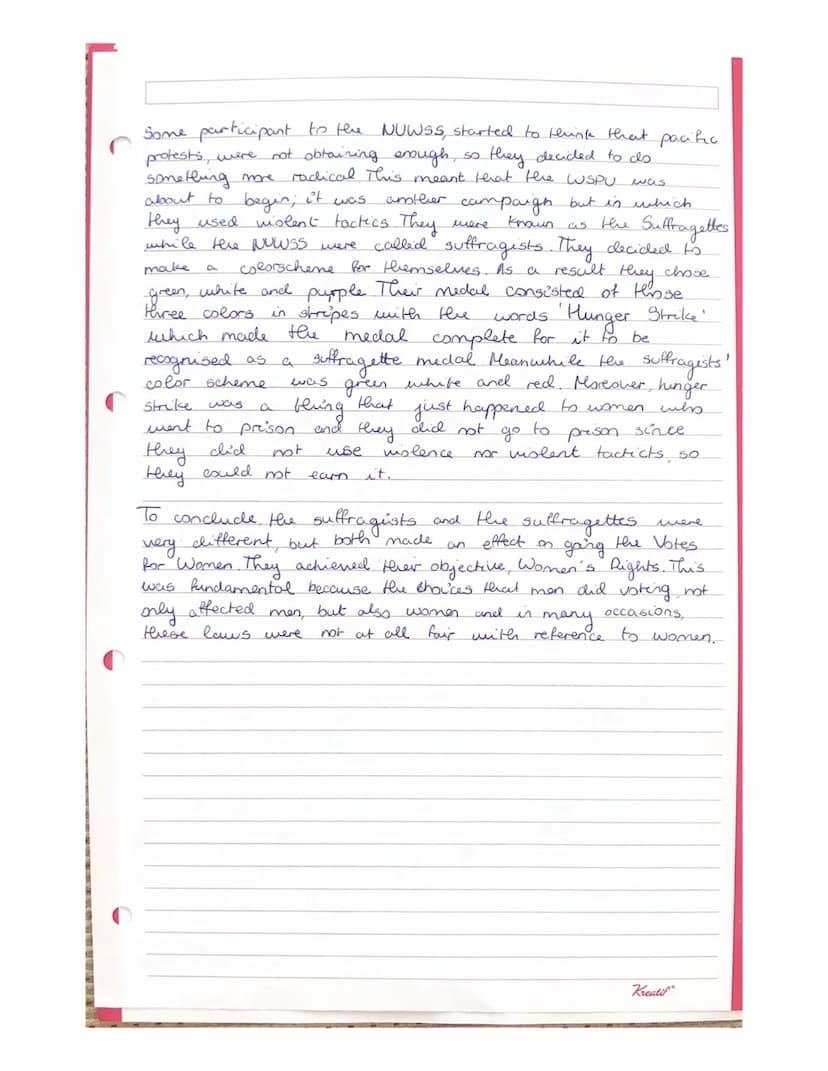 Some participant to the NUWSS, started to think that pacific
protests, were not obtaining enough, so they decided to do
something more radical. This meant that the WSPU was
about to begin; it was another campaign but in which
they used violent tactics. They were known as the Suffragettes
while the NUWSS were called suffragists. They decided to
make a colorscheme for themselves. As a result they chose
green, white and purple. Their medal consisted of those
three colors in stripes with the words 'Hunger Strike'
which made the medal complete for it to be
recognised as a suffragette medal. Meanwhile the suffragists'
color scheme was green white and red. Moreover, hunger
strike was a thing that just happened to women who
went to prison and they did not go to prison since
they did not use violence nor violent tacticts, so
they could not earn it.
To conclude, the suffragists and the suffragettes were
very different, but both made an effect on going the Votes
for Women. They achieved their objective, Women's Rights. This
was fundamental because the choices that men did voting, not
only affected men, but also women and in many occasions,
these laws were not at all fair with reference to women.
Kreatif